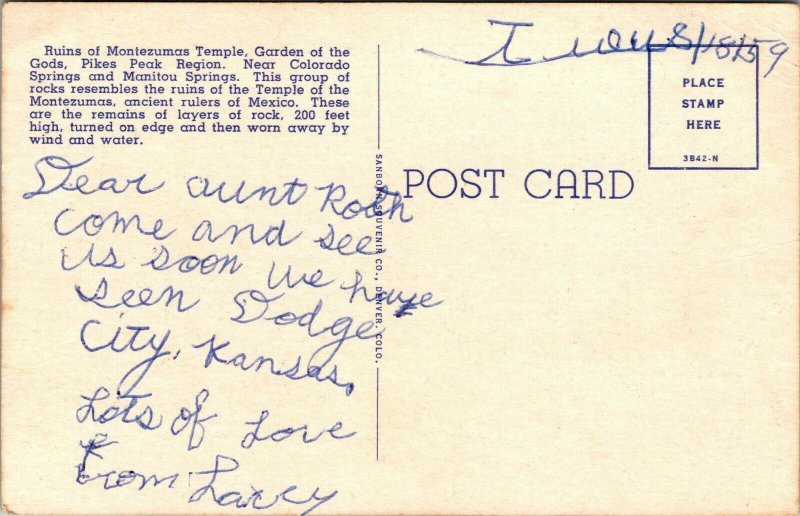 Ruins of Montezumas Temple, Garden of the
Gods, Pikes Peak Region. Near Colorado
Springs and Manitou Springs. This group of
rocks resembles the ruins of the Temple of the
Montezumas, ancient rulers of Mexico. These
are the remains of layers of rock, 200 feet
high, turned on edge and then worn away by
wind and water.
Dear aunt Roth
come and see
us soon we have
seen Dodge
City, Kansas,
Lots of Love
From Larry
SANBORN SOUVENIR CO., DENVER, COLO.
POST CARD
8/18/59
PLACE
STAMP
HERE
3B42-N